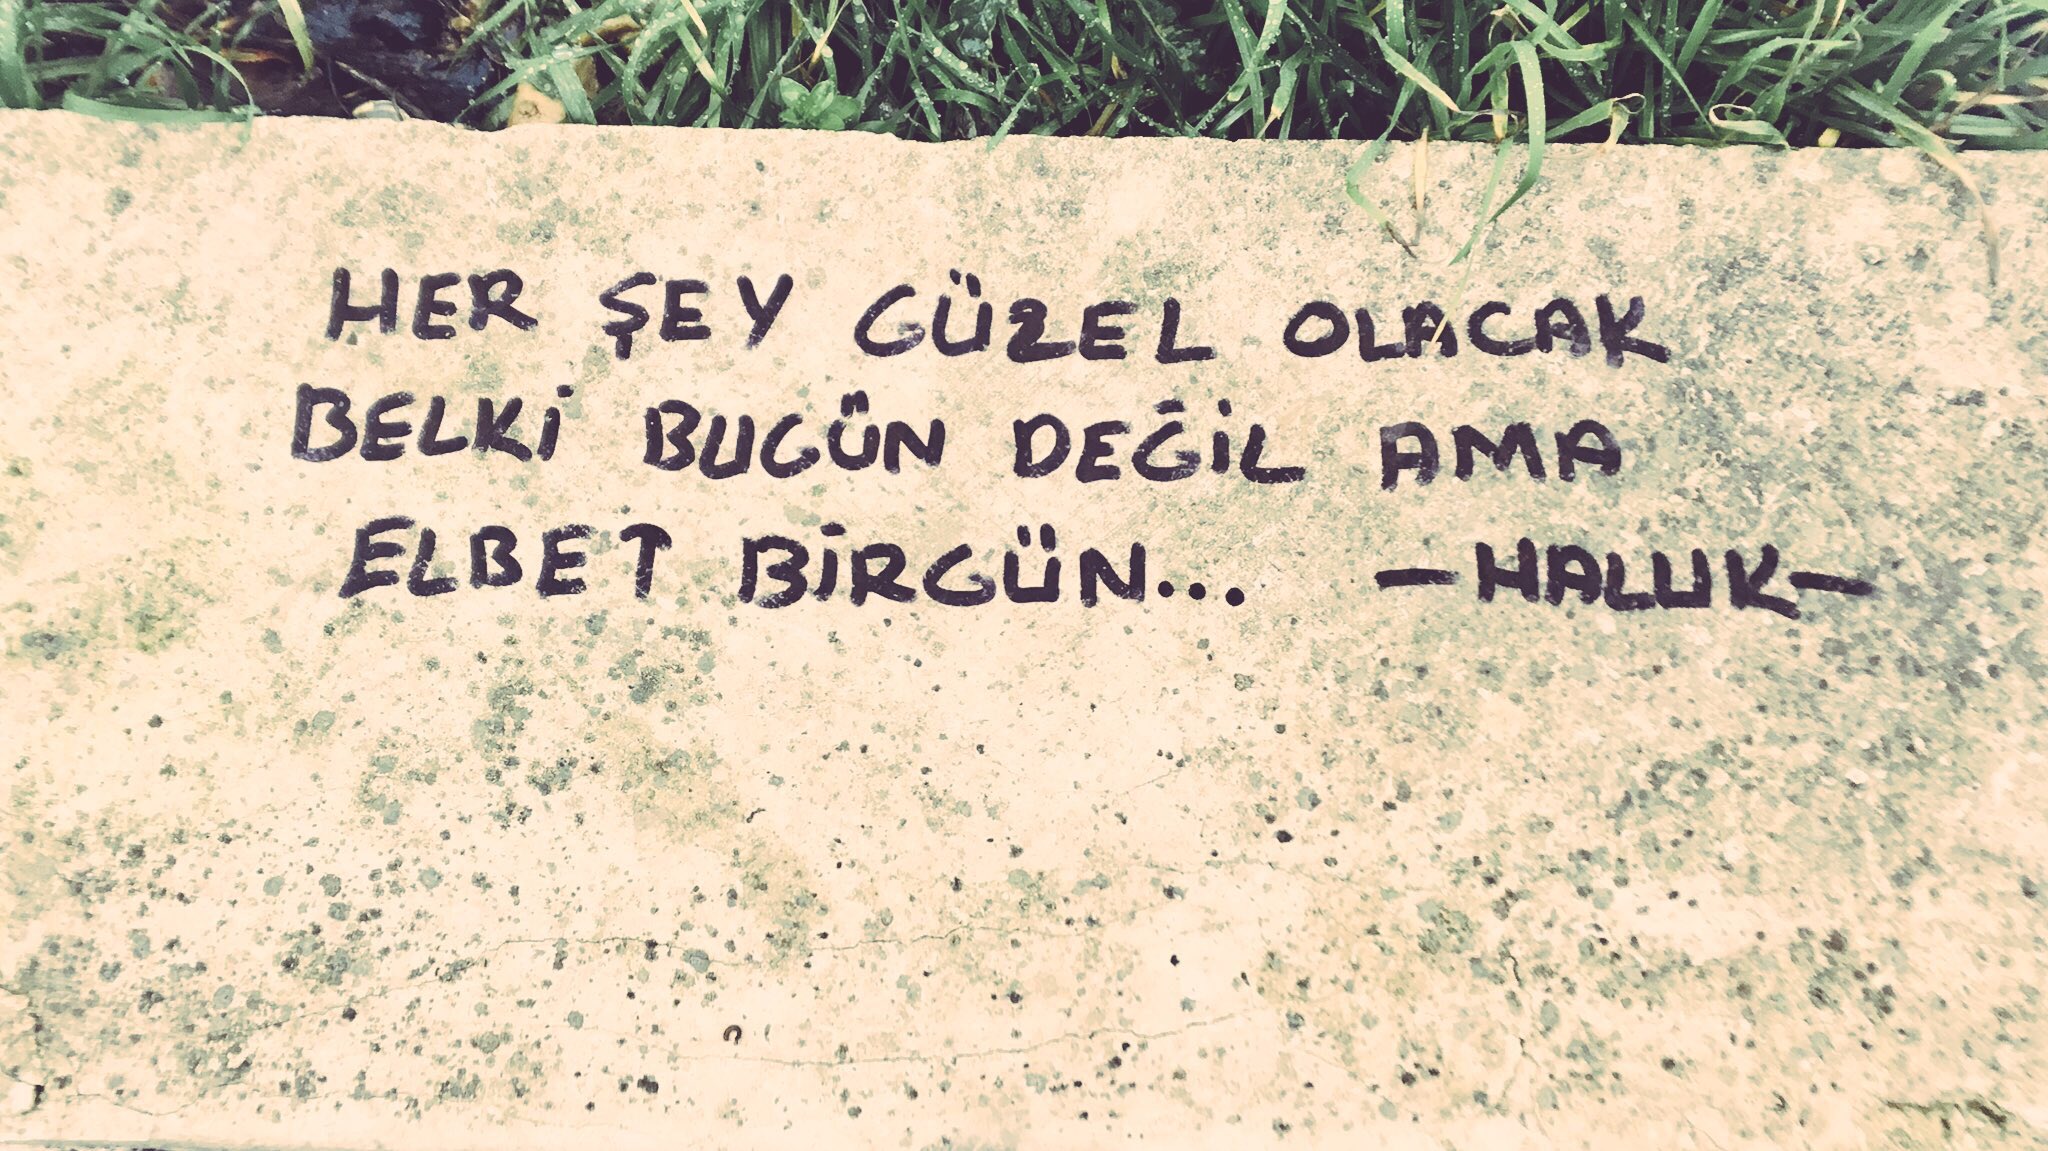 HER ŞEY GÜZEL OLACAK
BELKİ BUGÜN DEĞİL AMA
ELBET BİRGÜN... -HALUK-